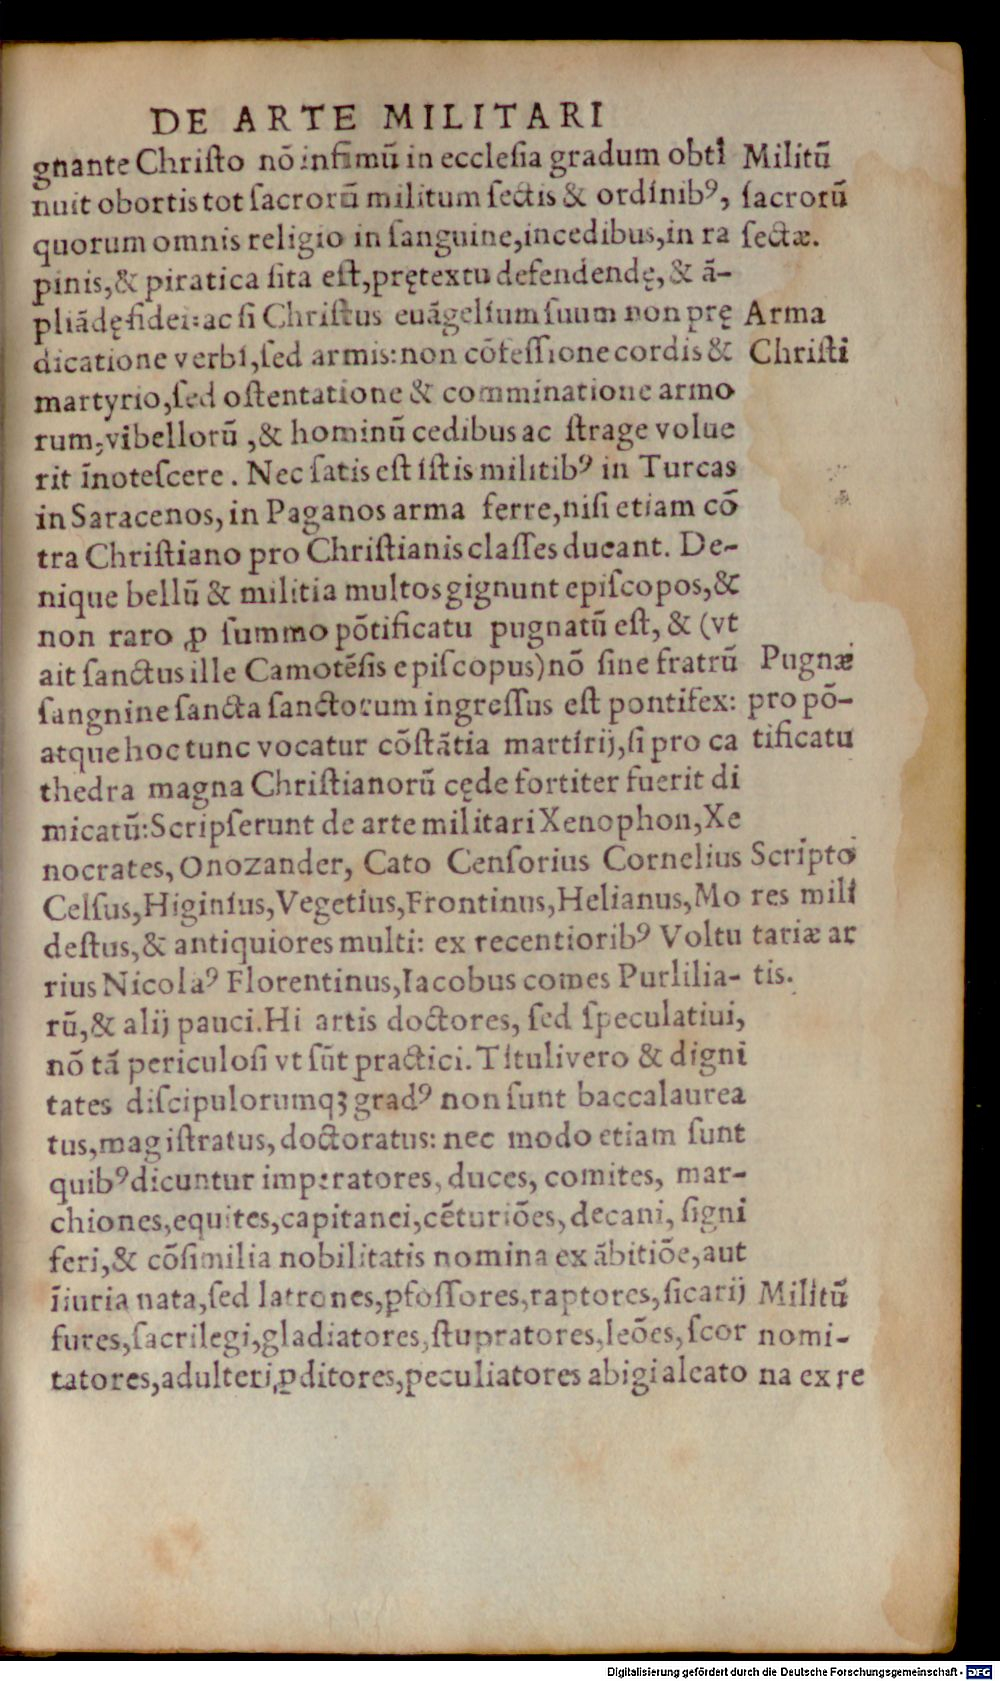 DE ARTE MILITARI
gnante Chriſto nō infimū in eccleſia gradum obti
nuit obortis tot ſacrorū militum ſectis & ordinibꝰ,
quorum omnis religio in ſanguine,incedibus,in ra
pinis,& piratica ſita eſt,prętextu defendendę,& ā-
pliādę fidei:ac ſi Chriſtus euāgelium ſuum non prę
dicatione verbi,ſed armis:non cōfeſſione cordis &
martyrio,ſed oſtentatione & comminatione armo
rum,vi bellorū ,& hominū cedibus ac ſtrage volue
rit īnoteſcere. Nec ſatis eſt iſtis militibꝰ in Turcas
in Saracenos, in Paganos arma ferre,niſi etiam cō
tra Chriſtiano pro Chriſtianis claſſes ducant. De-
nique bellū & militia multos gignunt epiſcopos,&
non raro ꝓ ſummo pōtificatu pugnatū eſt, & (vt
ait ſanctus ille Camotēſis epiſcopus)nō ſine fratrū
ſangnine ſancta ſanctorum ingreſſus eſt pontifex:
atque hoc tunc vocatur cōſtātia martirij,ſi pro ca
thedra magna Chriſtianorū cęde fortiter fuerit di
micatū:Scripſerunt de arte militari Xenophon,Xe
nocrates, Onozander, Cato Cenſorius Cornelius
Celſus,Higinius,Vegetius,Frontinus,Helianus,Mo
deſtus,& antiquiores multi: ex recentioribꝰ Voltu
rius Nicolaꝰ Florentinus,Iacobus comes Purlilia-
rū,& alij pauci.Hi artis doctores, ſed ſpeculatiui,
nō tā periculoſi vt ſūt practici. Tituli vero & digni
tates diſcipulorumqꝫ gradꝰ non ſunt baccalaurea
tus,magiſtratus,doctoratus: nec modo etiam ſunt
quibꝰ dicuntur imperatores, duces, comites, mar-
chiones,equites,capitanei,cēturiōes,decani, ſigni
feri,& cōſimilia nobilitatis nomina ex ābitiōe,aut
īiuria nata,ſed latrones,ꝑfoſſores,raptores,ſicarij
fures,ſacrilegi,gladiatores,ſtupratores,leōes,ſcor
tatores,adulteri,ꝓditores,peculiatores abigi aleato
Militū
ſacrorū
ſectæ.
Arma
Chriſti
Pugnæ
pro pō-
tificatu
Scripto
res mili
tariæ ar
tis.
Militū
nomi-
na ex re
Digitalisierung gefördert durch die Deutsche Forschungsgemeinschaft - DFG